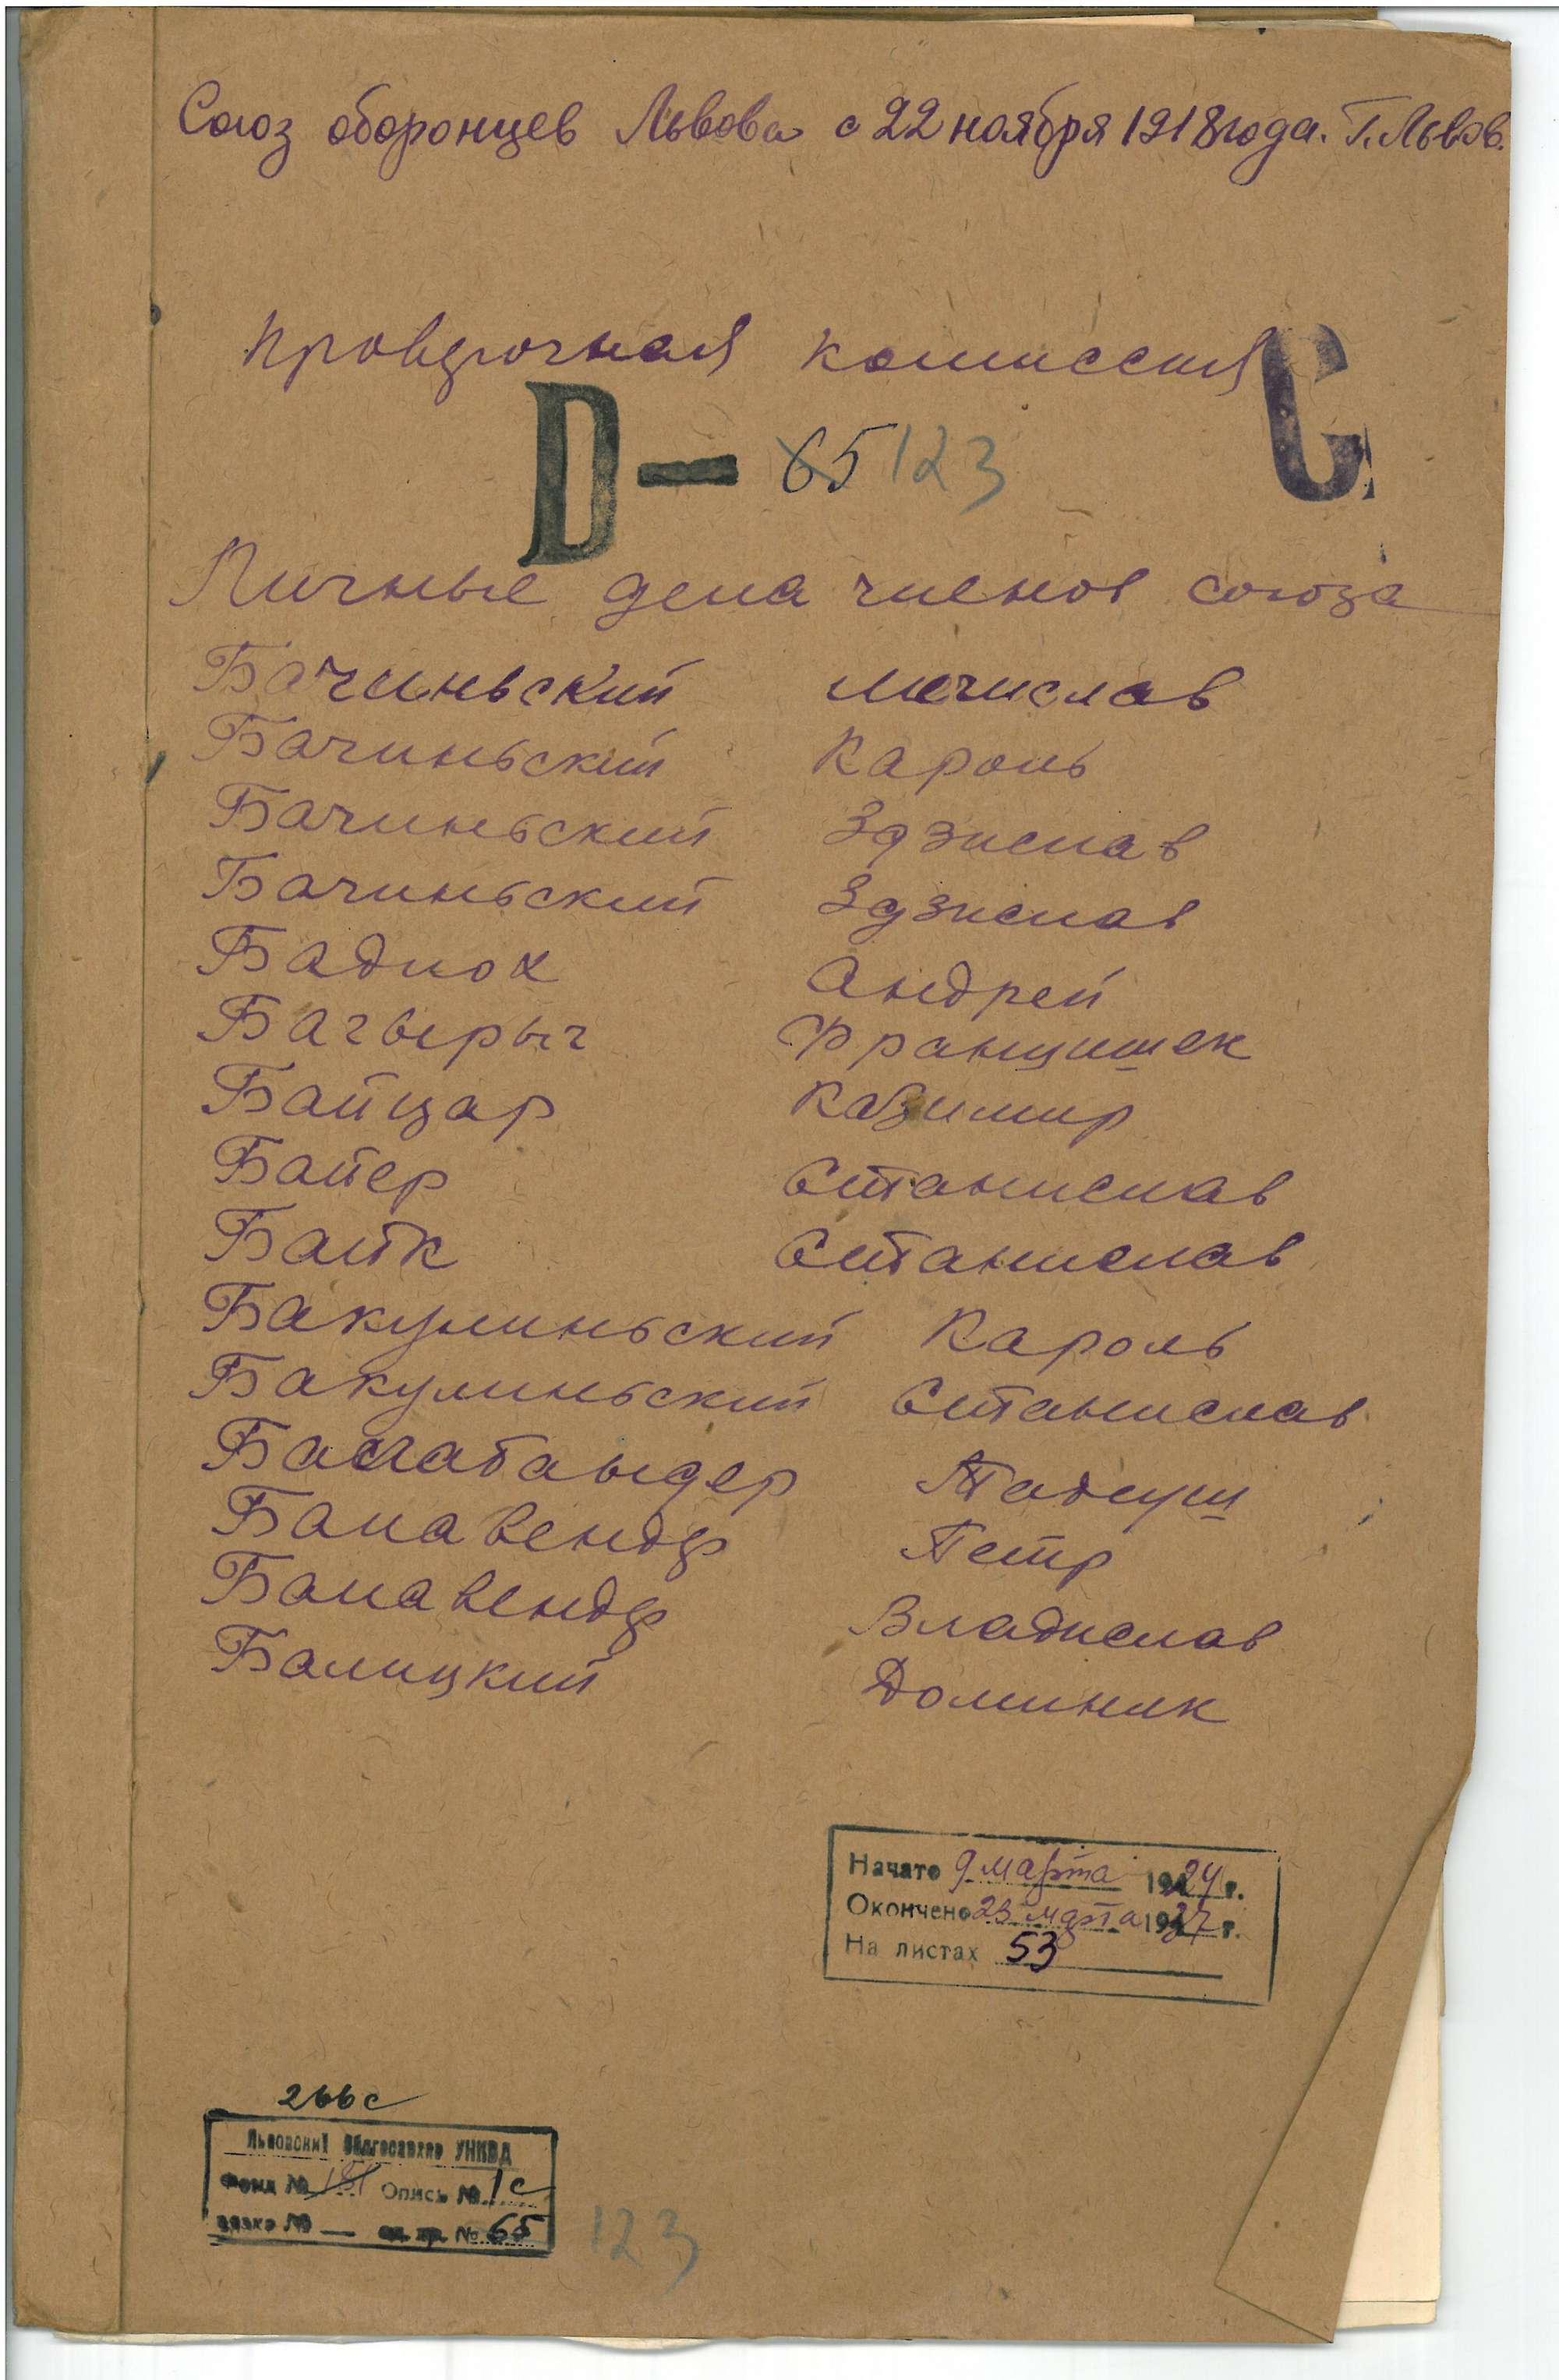 Союз оборонцев Львова с 22 ноября 1918 года. Г. Львов.
Проверочная комиссия
С
D — 65 123
Личные дела членов союза
Бачиньский Мечислав
Бачиньский Кароль
Бачиньский Здзислав
Бачиньский Здзислав
Бадиох Андрей
Францишек
Байцар Казимир
Байер Станислав
Байк Станислав
Бакулиньский Кароль
Бакулиньский Станислав
Балабандер Тадеуш
Балавендер Петр
Балавендер Владислав
Балицкий Доминик
Начато 9 марта 1924 г.
Окончено 23 марта 1937 г.
На листах 53
266с
Львовский Облгосархив УНКВД
Фонд № 181 Опись № 1с
вязка № — ед. хр. № 65
123